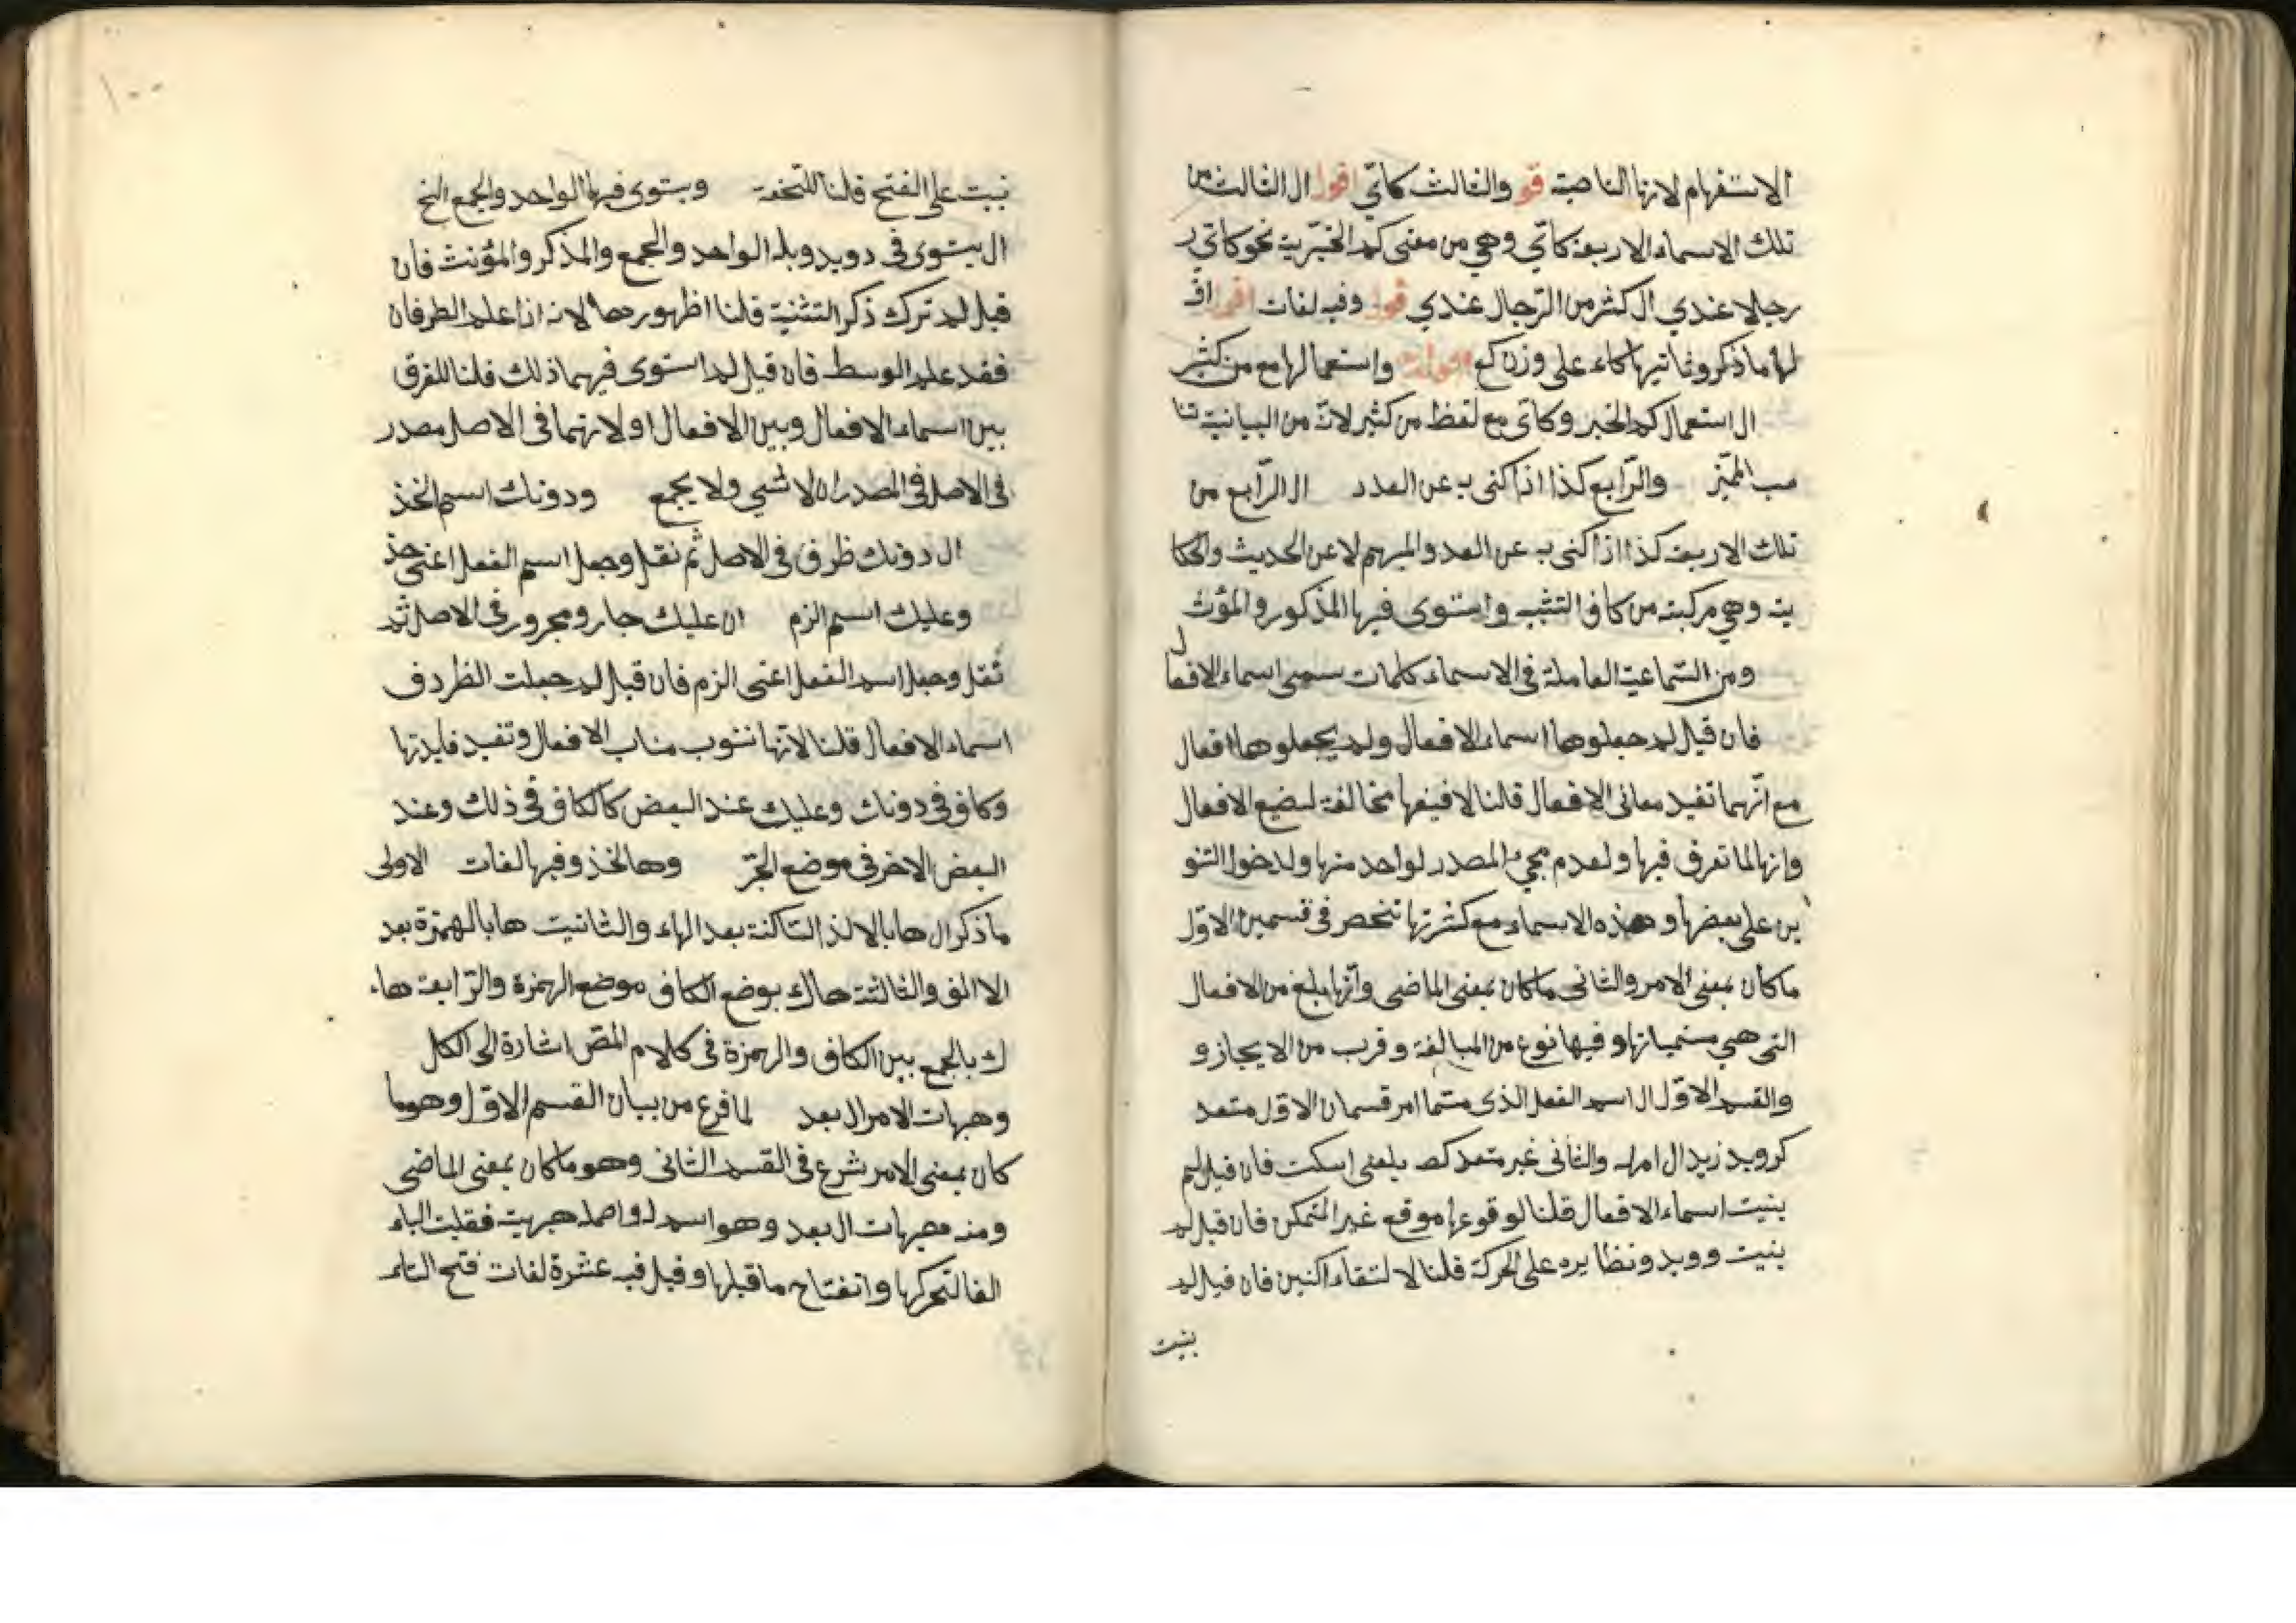 الاستفهام لانها الناصبة قو والثالث كاتي اقول ال الثالث من
تلك الاسماء الاربعة كاتي وهي من معنى كم الخبرية نحو كاتي ر
رجلا عندي ال كثر من الرجال عندي قول وفيه لغات اقول اق
لها ما ذكر وثانيها كاء على وزن كع واستعمالها مع من كثير
ال استعمال كم الخبر وكاى مع لفظ من كثير لان من البيانية تنا
سب المميز والرابع كذا اذا كنى به عن العدد ال الرابع من
تلك الاربعة كذا اذا كنى به عن العدد والمبهم لا عن الحديث والحكا
ية وهي مركبة من كاف التشبيه واستوى فيها المذكور والمؤنث
ومن السماعية العاملة في الاسماء كلمات سمى اسماء الافعال
فان قيل لم جعلوها اسماء الافعال ولم يجعلوها افعال
مع انهما تفيد معانى الافعال قلنا لا فيغها مخالفة لصيغ الافعال
وانها لما تعرف فيها ولعدم مجيء المصدر لواحد منها ولدخول التنو
ين على بعضها وهذه الاسماء مع كثرتها تنحصر في قسمين الاول
ما كان بمعنى الامر والثانى ما كان بمعنى الماضى وانها بلغ من الافعال
التى هي مسمياتها وفيها نوع من المبالغة وقرب من الايجاز و
والقسم الاول ال اسم الفعل الذى متما امر قسمان الاول متعد
كرويد زيد ال امهله والثانى غير متعد كصه بمعنى اسكت فان قيل لم
بنيت اسماء الافعال قلنا لوقوعها موقع غير المتمكن فان قيل لم
بنيت وويد ونظايره على الحركة قلنا لالتقاء اكنين فان قيل لم
بنيت
نبيت على الفتح قلنا للتخفة ويستوى فيها الواحد والجمع الخ
ال يستوى في دويد وبله الواحد والجمع والمذكر والمؤنث فان
قيل لم ترك ذكر التثنية قلنا اظهورها لانه اذا علم الطرفان
فقد علم الوسط فان قيل لم استوى فيهما ذلك قلنا للفرق
بين اسماء الافعال وبين الافعال او لانهما في الاصل مصدر
في الاصل في المصدر ان لا شي ولا يجمع ودونك اسم لخذ
ال دونك ظرف في الاصل ثم نقل وجعل اسم الفعل اعنى خذ
وعليك اسم الزم ان عليك جار ومجرور في الاصل ثم
ثقل وجعل اسم الفعل اعنى الزم فان قيل لم جعلت الظردف
اسماء الافعال قلنا لانها ننوب مناب الافعال وتفيد فايدتها
وكاف في دونك وعليك عند البعض كالكاف في ذلك وعند
البعض الاخر في موضع الجر وها لخذ وفيها لغات الاولى
ما ذكر ال ها بالالف الساكنة بعد الهاء والثانيت هاء بالهمزة بعد
الاالف والثالثة هاك بوضع الكاف موضع الهمزة والرابعة هاء
ك بالجمع بين الكاف والهمزة في كلام المص اشارة الى الكل
وهيهات الامر ال بعد لما فرغ من بيان القسم الاول وهو ما
كان بمعنى الامر شرع في القسم الثانى وهو ما كان بمعنى الماضى
ومنه هيهات ال بعد وهو اسم له واصله هيهيت فقلبت الياء
الفا لتحركها وانفتاح ما قبلها وقيل فيه عشرة لغات فتح التاء
١٠٠